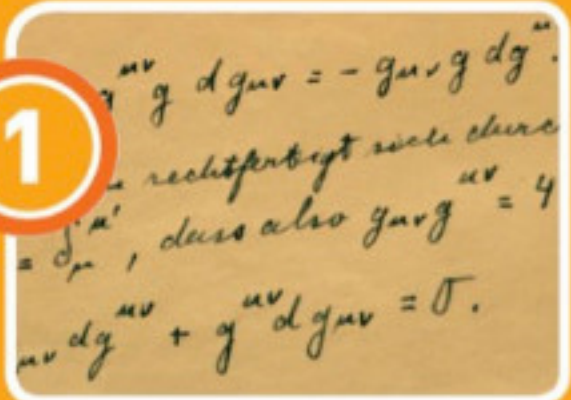 1
g^{μν} g dg_{μν} = - g_{μν} g dg^{μν}.
rechtfertigt sich durc
= δ_μ^{μ'}, dass also g_{μν} g^{μν} = 4
_{μν} dg^{μν} + g^{μν} dg_{μν} = 0.